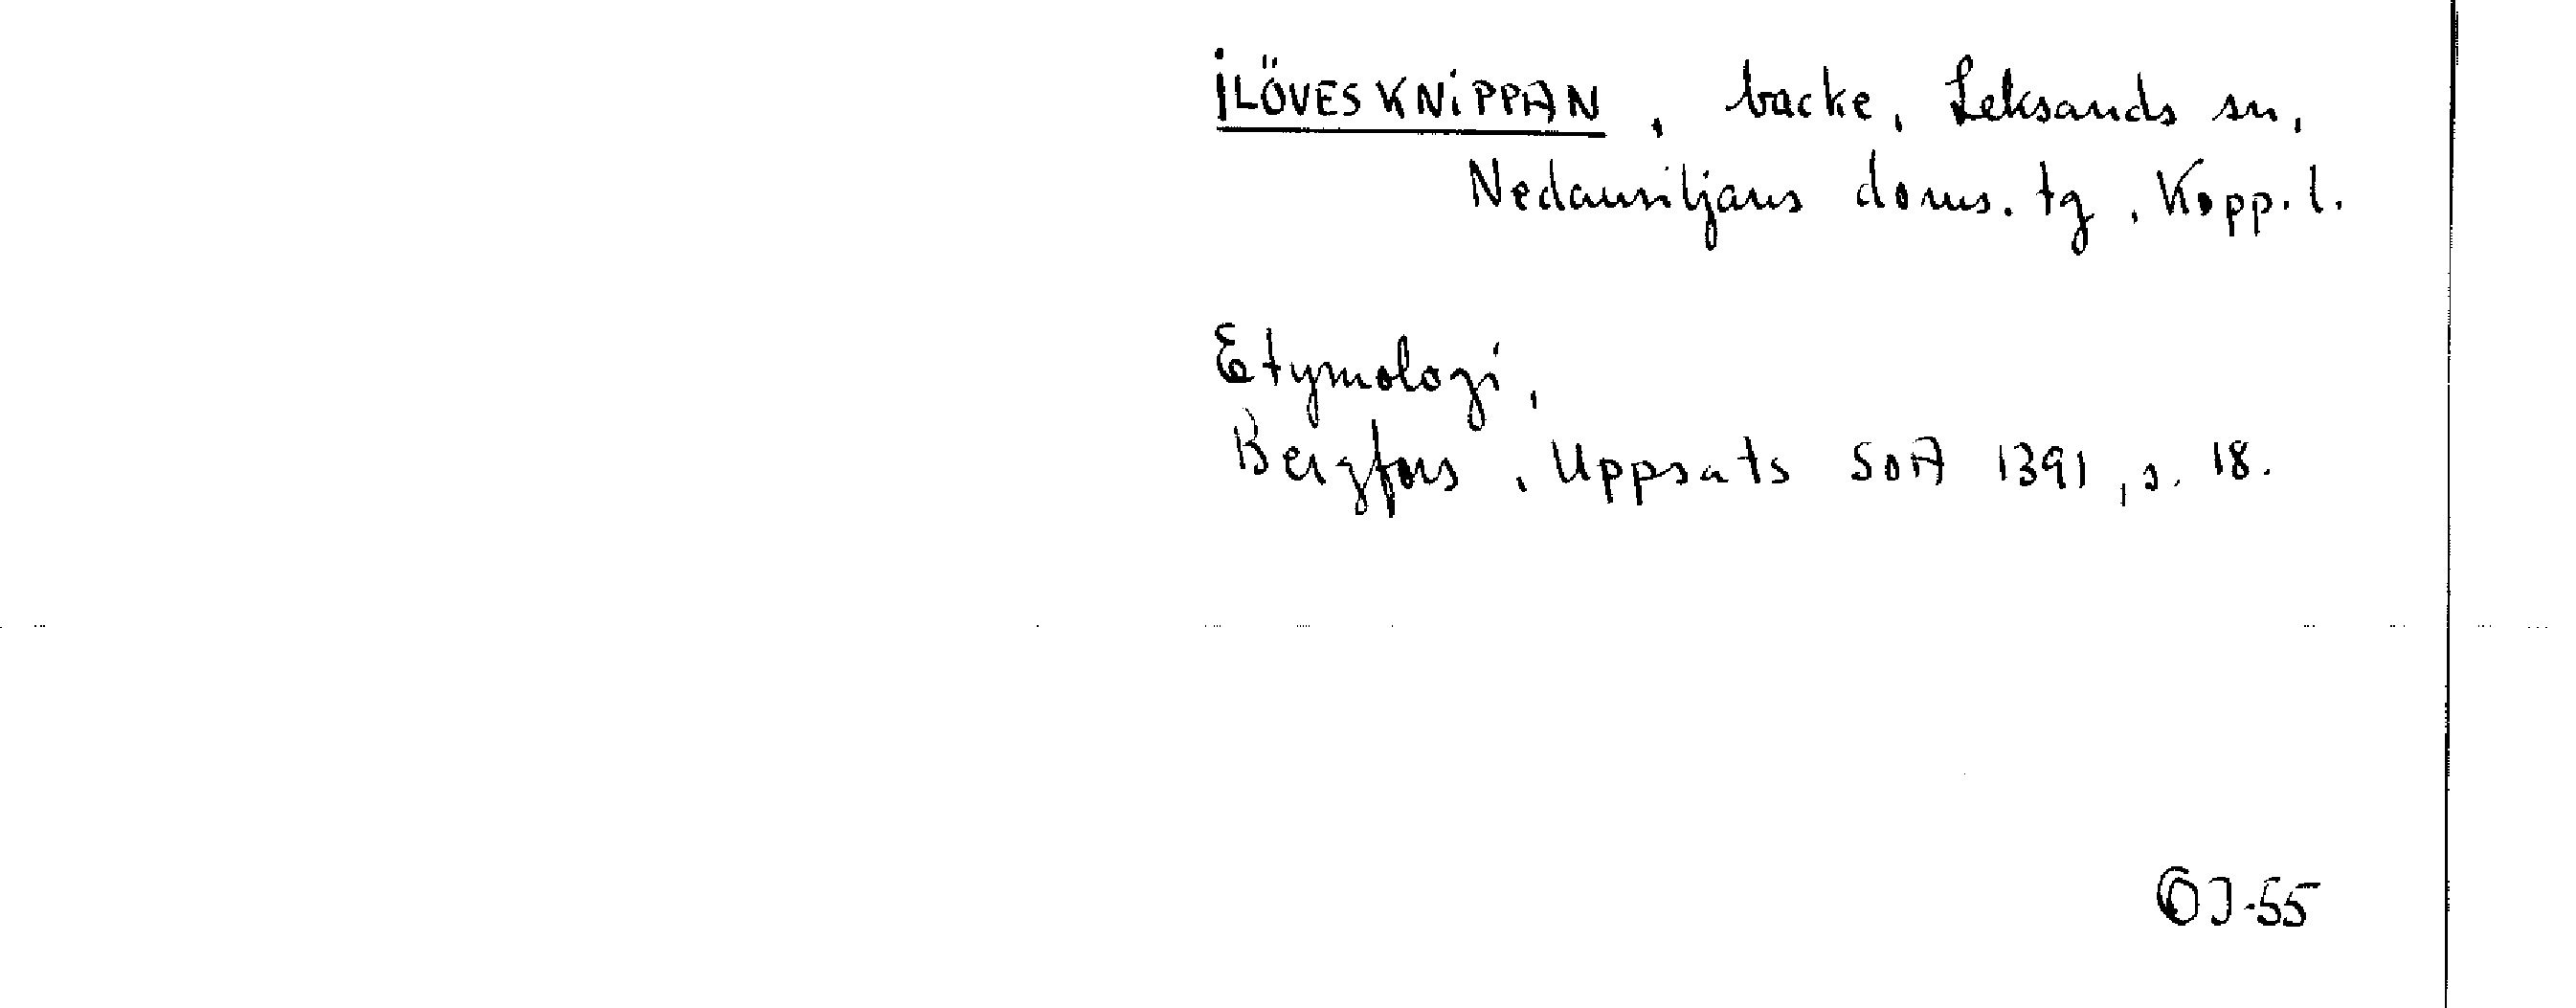 ILÖVESKNIPPAN, backe, Leksands sn,
Nedansiljans doms. tg, Kopp. l.
Etymologi,
Bergfors, Uppsats SOA 1391, s. 18.
OJ-55